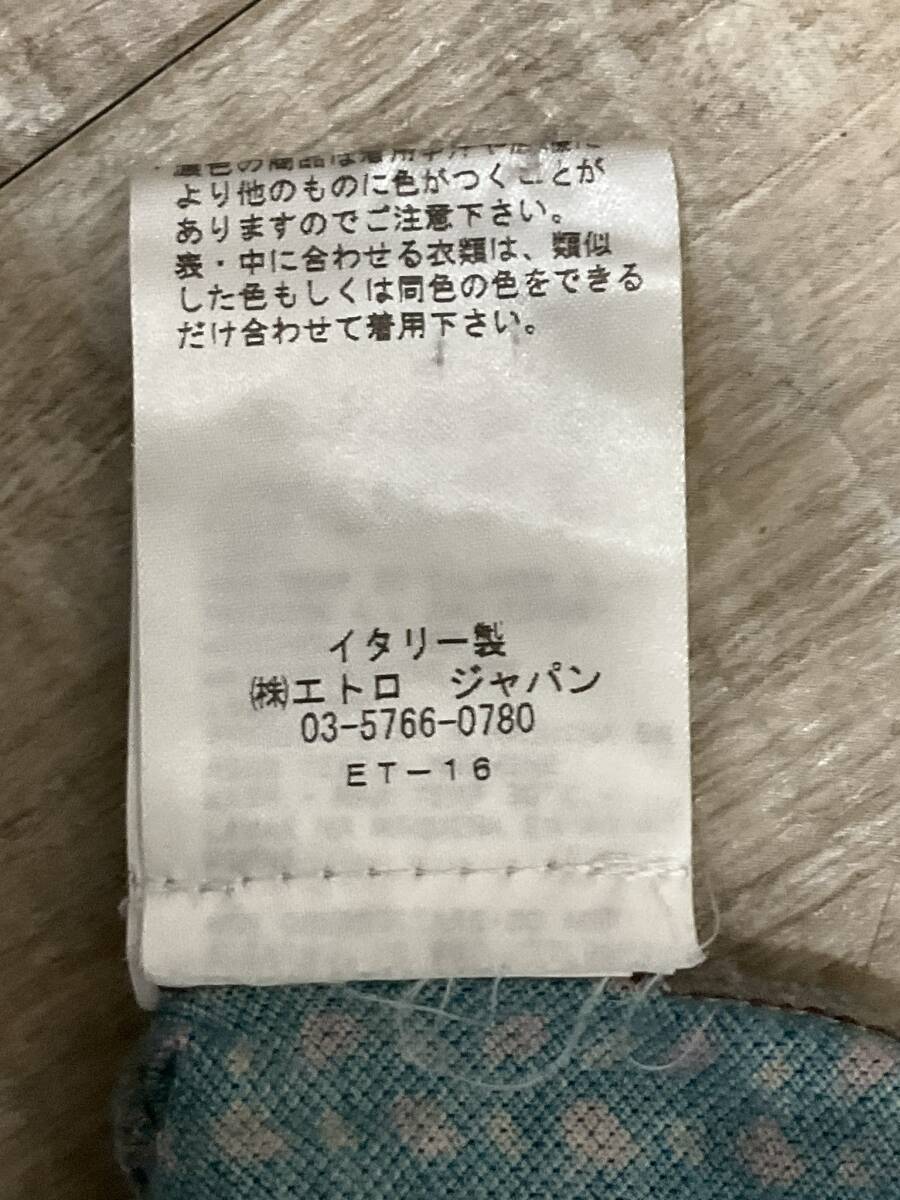 濃色の商品は着用中汗や
より他のものに色がつくことが
ありますのでご注意下さい。
表・中に合わせる衣類は、類似
した色もしくは同色の色をできる
だけ合わせて着用下さい。
イタリー製
㈱エトロ　ジャパン
03-5766-0780
ET-16